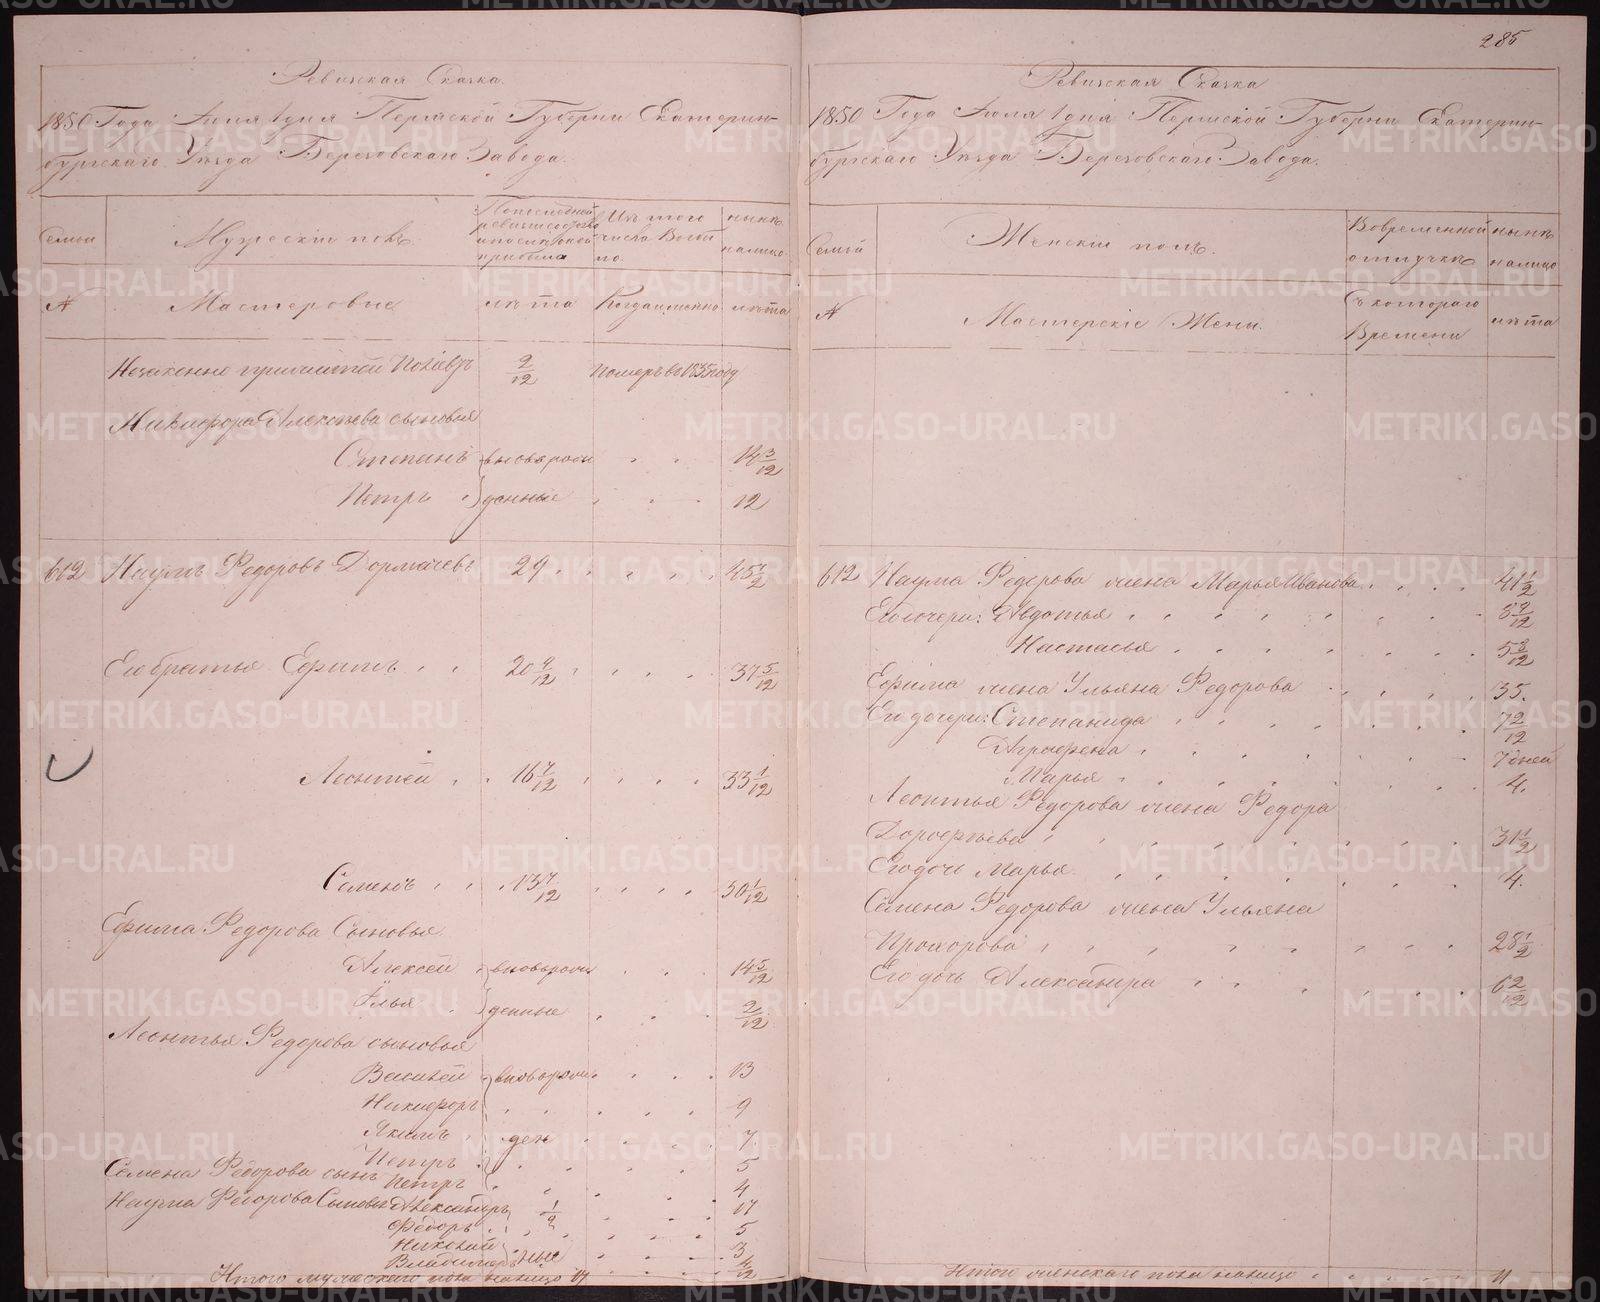 Ревизская Сказка.
1850 Года Июля 1 дня Пермской Губернии Екатерин-
бургскаго Уезда Березовскаго Завода.
Семьи
Мужескiй полъ.
По последней ревизiи состояло и после оной прибыло
Изъ того числа выбыло.
ныне на лицо.
№
Мастеровые
лета
Когда именно
лета
померъ въ 1835 году
2/12
Никифора Алексеева сыновья
Степанъ вновь рож 14 3/12
Петръ денные 12
612 Наумъ Федоровъ Дормачевъ 29 45 1/2
Его братья Ефимъ 20 9/12 37 5/12
Леонтей 16 7/12 33 1/12
Семенъ 13 7/12 30 1/12
Ефима Федорова Сыновья
Алексей вновь рож 14 5/12
Илья денные 2/12
Леонтья Федорова сыновья
Василей вновь рож 13
Никифоръ 9
Якимъ ден 7
Петръ 5
Семена Федорова сынъ Петръ 4
Наума Федорова Сыновья Александръ 1/2 17
Федоръ 5
Николай 3
Владимиръ ные 4/12
Итого мужескаго пола налицо 17
285
Ревизская Сказка
1850 Года Июля 1 дня Пермской Губернии Екатерин-
бургскаго Уезда Березовскаго Завода.
Семьи
Женскiй полъ.
Во временной отлучке
ныне на лицо
№
Мастерскiе Жены.
Съ котораго Времени
лета
612 Наума Федорова жена Марья Иванова 41 1/2
Его дочери: Авдотья 8 9/12
Настасья 5 8/12
Ефима жена Ульяна Федорова 35.
Его дочери: Степанида 7 2/12
Аграфена 7 дней
Марья 4.
Леонтья Федорова жена Федора
Дорофеева 31 1/2
Его дочь Марья 4.
Семена Федорова жена Ульяна
Прохорова 28 1/2
Его дочь Александра 6 2/12
Итого женскаго пола налицо 11
METRIKI.GASO-URAL.RU